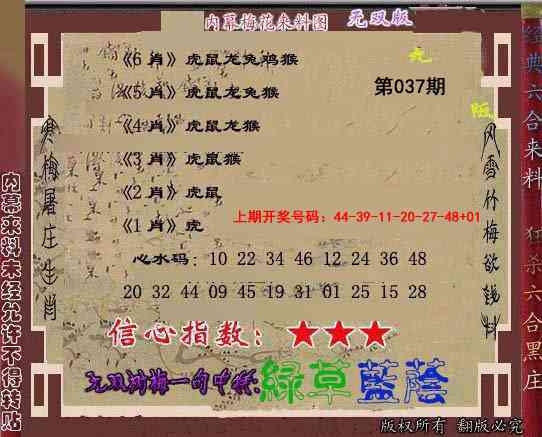 内幕梅花来料图 无双版
《6 肖》虎鼠龙兔鸡猴
《5 肖》虎鼠龙兔猴
《4 肖》虎鼠龙猴
《3 肖》虎鼠猴
《2 肖》虎鼠
《1 肖》虎
第037期
上期开奖号码：44-39-11-20-27-48+01
心水码：10 22 34 46 12 24 36 48
20 32 44 09 45 19 31 01 25 15 28
信心指数：★★★
绿草蓝荫
版权所有 翻版必究
内幕来料未经允许不得转贴
寒梅屠庄生肖
风雪竹梅欲钱料
经典六合来料 狂杀六合黑庄